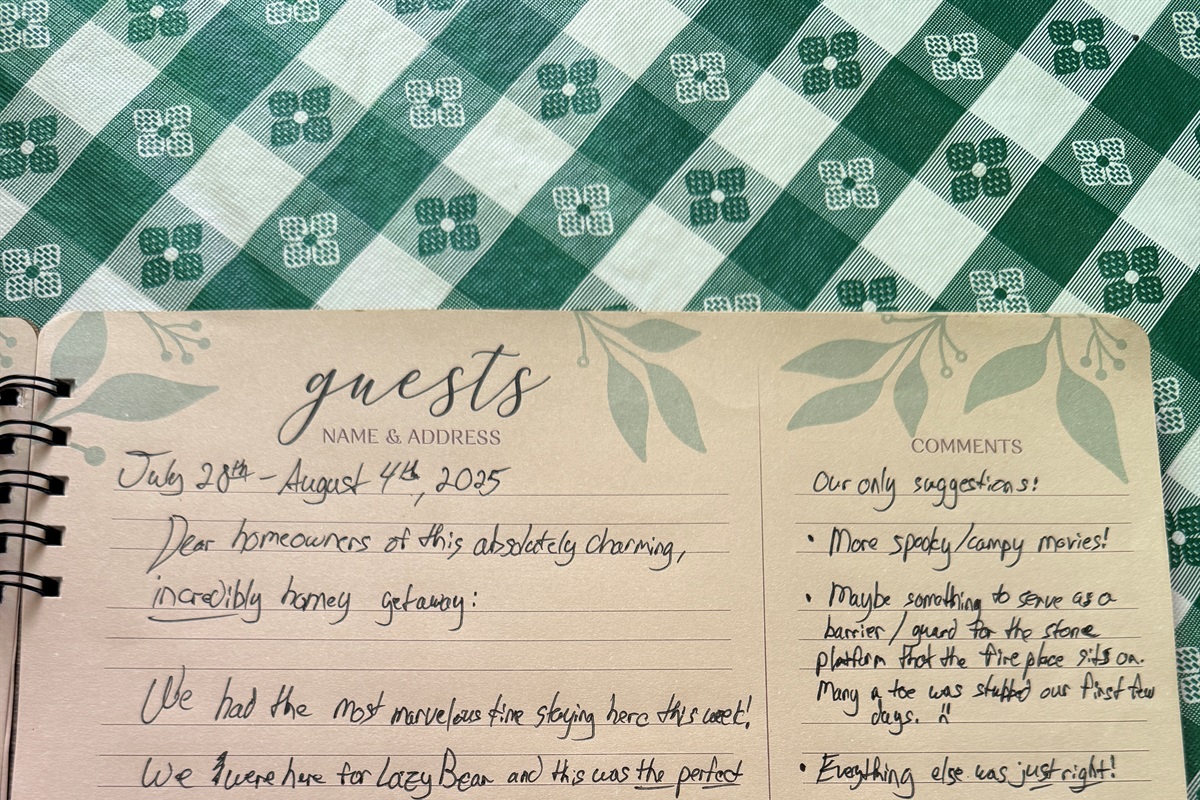 guests
NAME & ADDRESS
July 28th - August 4th, 2025
Dear homeowners of this absolutely charming,
incredibly homey getaway:
We had the most marvelous time staying here this week!
We were here for Lazy Bear and this was the perfect
COMMENTS
Our only suggestions:
• More spooky/campy movies!
• Maybe something to serve as a
barrier / guard for the stone
platform that the fireplace sits on.
Many a toe was stubbed our first few
days. :(
• Everything else was just right!